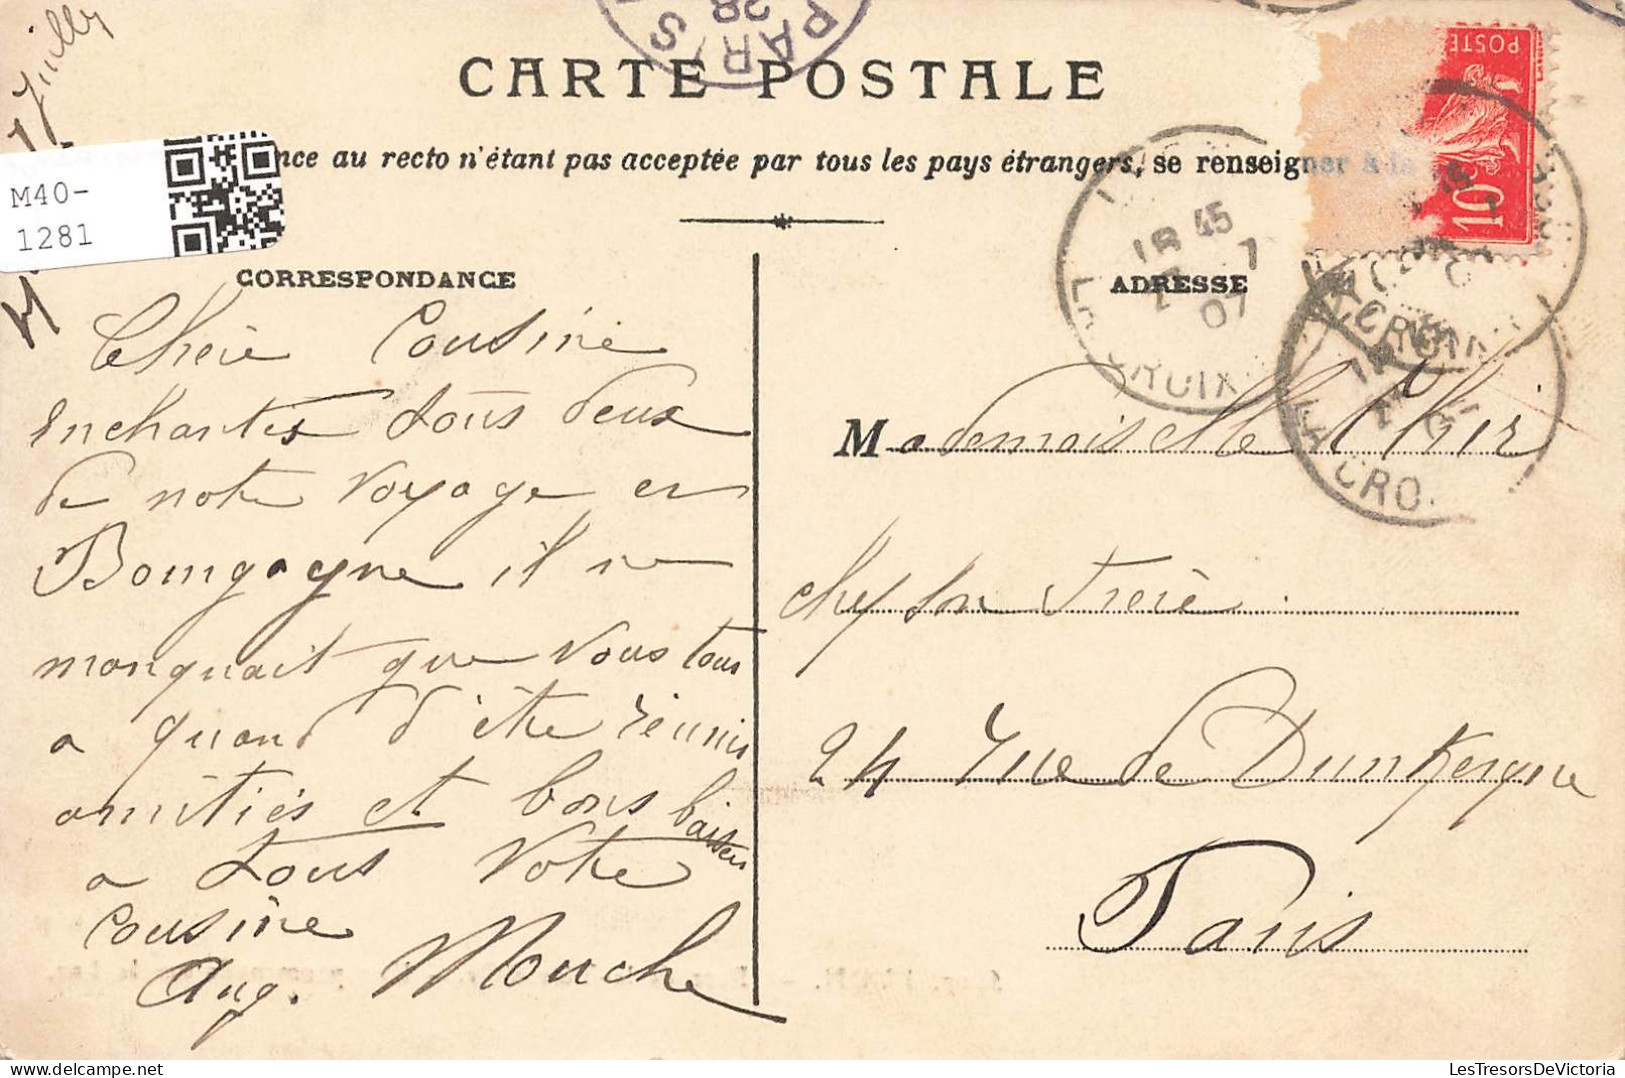 Juilly
PARIS
28
CARTE POSTALE
nce au recto n'étant pas acceptée par tous les pays étrangers, se renseigner à la
M40-
1281
POSTES
10
CORRESPONDANCE
ADRESSE
18 45
7
07
CROIX
CRO
Chère Cousine
enchantés tous deux
de notre voyage en
Bourgogne il ne
manquait que vous tous
a quand d'être réunis
amitiés et bons baisers
a tous Votre
Cousine
Aug. Mouche
Mademoiselle
chez son Frère
24 rue de Dunkerque
Paris
LesTresorsDeVictoria